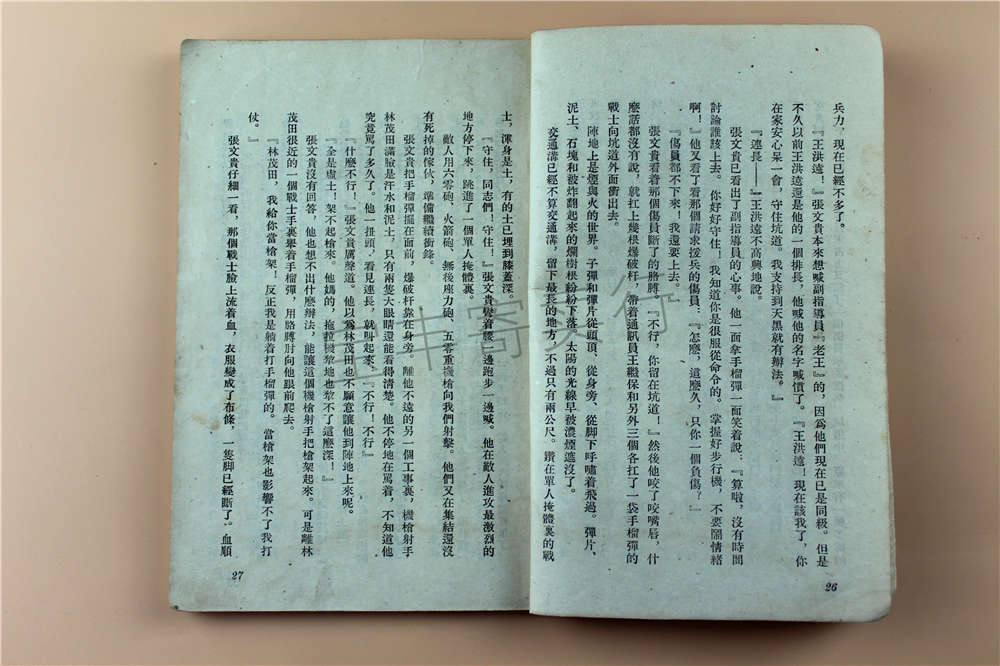 兵力，現在已經不多了。
『王洪遠！』張文貴本來想喊副指導員『老王』的，因爲他們現在已是同級。但是
不久以前王洪遠還是他的一個排長，他喊他的名字喊慣了。『王洪遠！現在該我了，你
在家安心呆一會，守住坑道。我支持到天黑就有辦法。』
『連長——』王洪遠不高興地說。
張文貴已看出了副指導員的心事。他一面拿手榴彈一面笑着說：『算啦，沒有時間
討論誰該上去。你好好守住！我知道你是很服從命令的。掌握好步行機，不要鬧情緒
啊！』他又看了看那個請求援兵的傷員：『怎麽，這麽久，只你一個負傷？』
『傷員都不下來！我還要上去。』
張文貴看着那個傷員斷了的胳膊。『不行，你留在坑道！』然後他咬了咬嘴唇，什
麽話都沒有說，就扛上幾根爆破杆，帶着通訊員王繼保和另外三個各扛了一袋手榴彈的
戰士向坑道外面衝出去。
陣地上是煙與火的世界。子彈和彈片從頭頂、從身旁、從脚下呼嘯着飛過。彈片、
泥土、石塊和被炸翻起來的爛樹根紛紛下落。太陽的光線早被濃煙遮沒了。
交通溝已經不算交通溝，留下最長的地方，不過只有兩公尺。鑽在單人掩體裏的戰
26
士，渾身是土，有的土已埋到膝蓋深。
『守住，同志們！守住！』張文貴彎着腰一邊跑步一邊喊。他在敵人進攻最激烈的
地方停下來，跳進了一個單人掩體裏。
敵人用六零砲、火箭砲、無後座力砲、五零重機槍向我們射擊。他們又在集結還沒
有死掉的傢伙，準備繼續衝鋒。
張文貴把手榴彈擺在面前，爆破杆靠在身旁。離他不遠的另一個工事裏，機槍射手
林茂田滿臉是汗水和泥土，只有兩隻大眼睛還能看得淸楚。他不停地在罵着，不知道他
究竟罵了多久了。他一扭頭，看見連長，就叫起來：『不行！不行』
『什麽不行！』張文貴厲聲道。他以爲林茂田也不願意讓他到陣地上來呢。
『全是虛土！架不起槍來。他媽的，拖拉機犂地也犂不了這麽深！』
張文貴沒有回答，他也想不出什麽辦法，能讓這個機槍射手把槍架起來。可是離林
茂田很近的一個戰士手裏舉着手榴彈，用胳膊肘向他跟前爬去。
『林茂田，我給你當槍架！反正我是躺着打手榴彈的。當槍架也影響不了我打
仗。』
張文貴仔細一看，那個戰士臉上流着血，衣服變成了布條，一隻脚已經斷了。血順
27